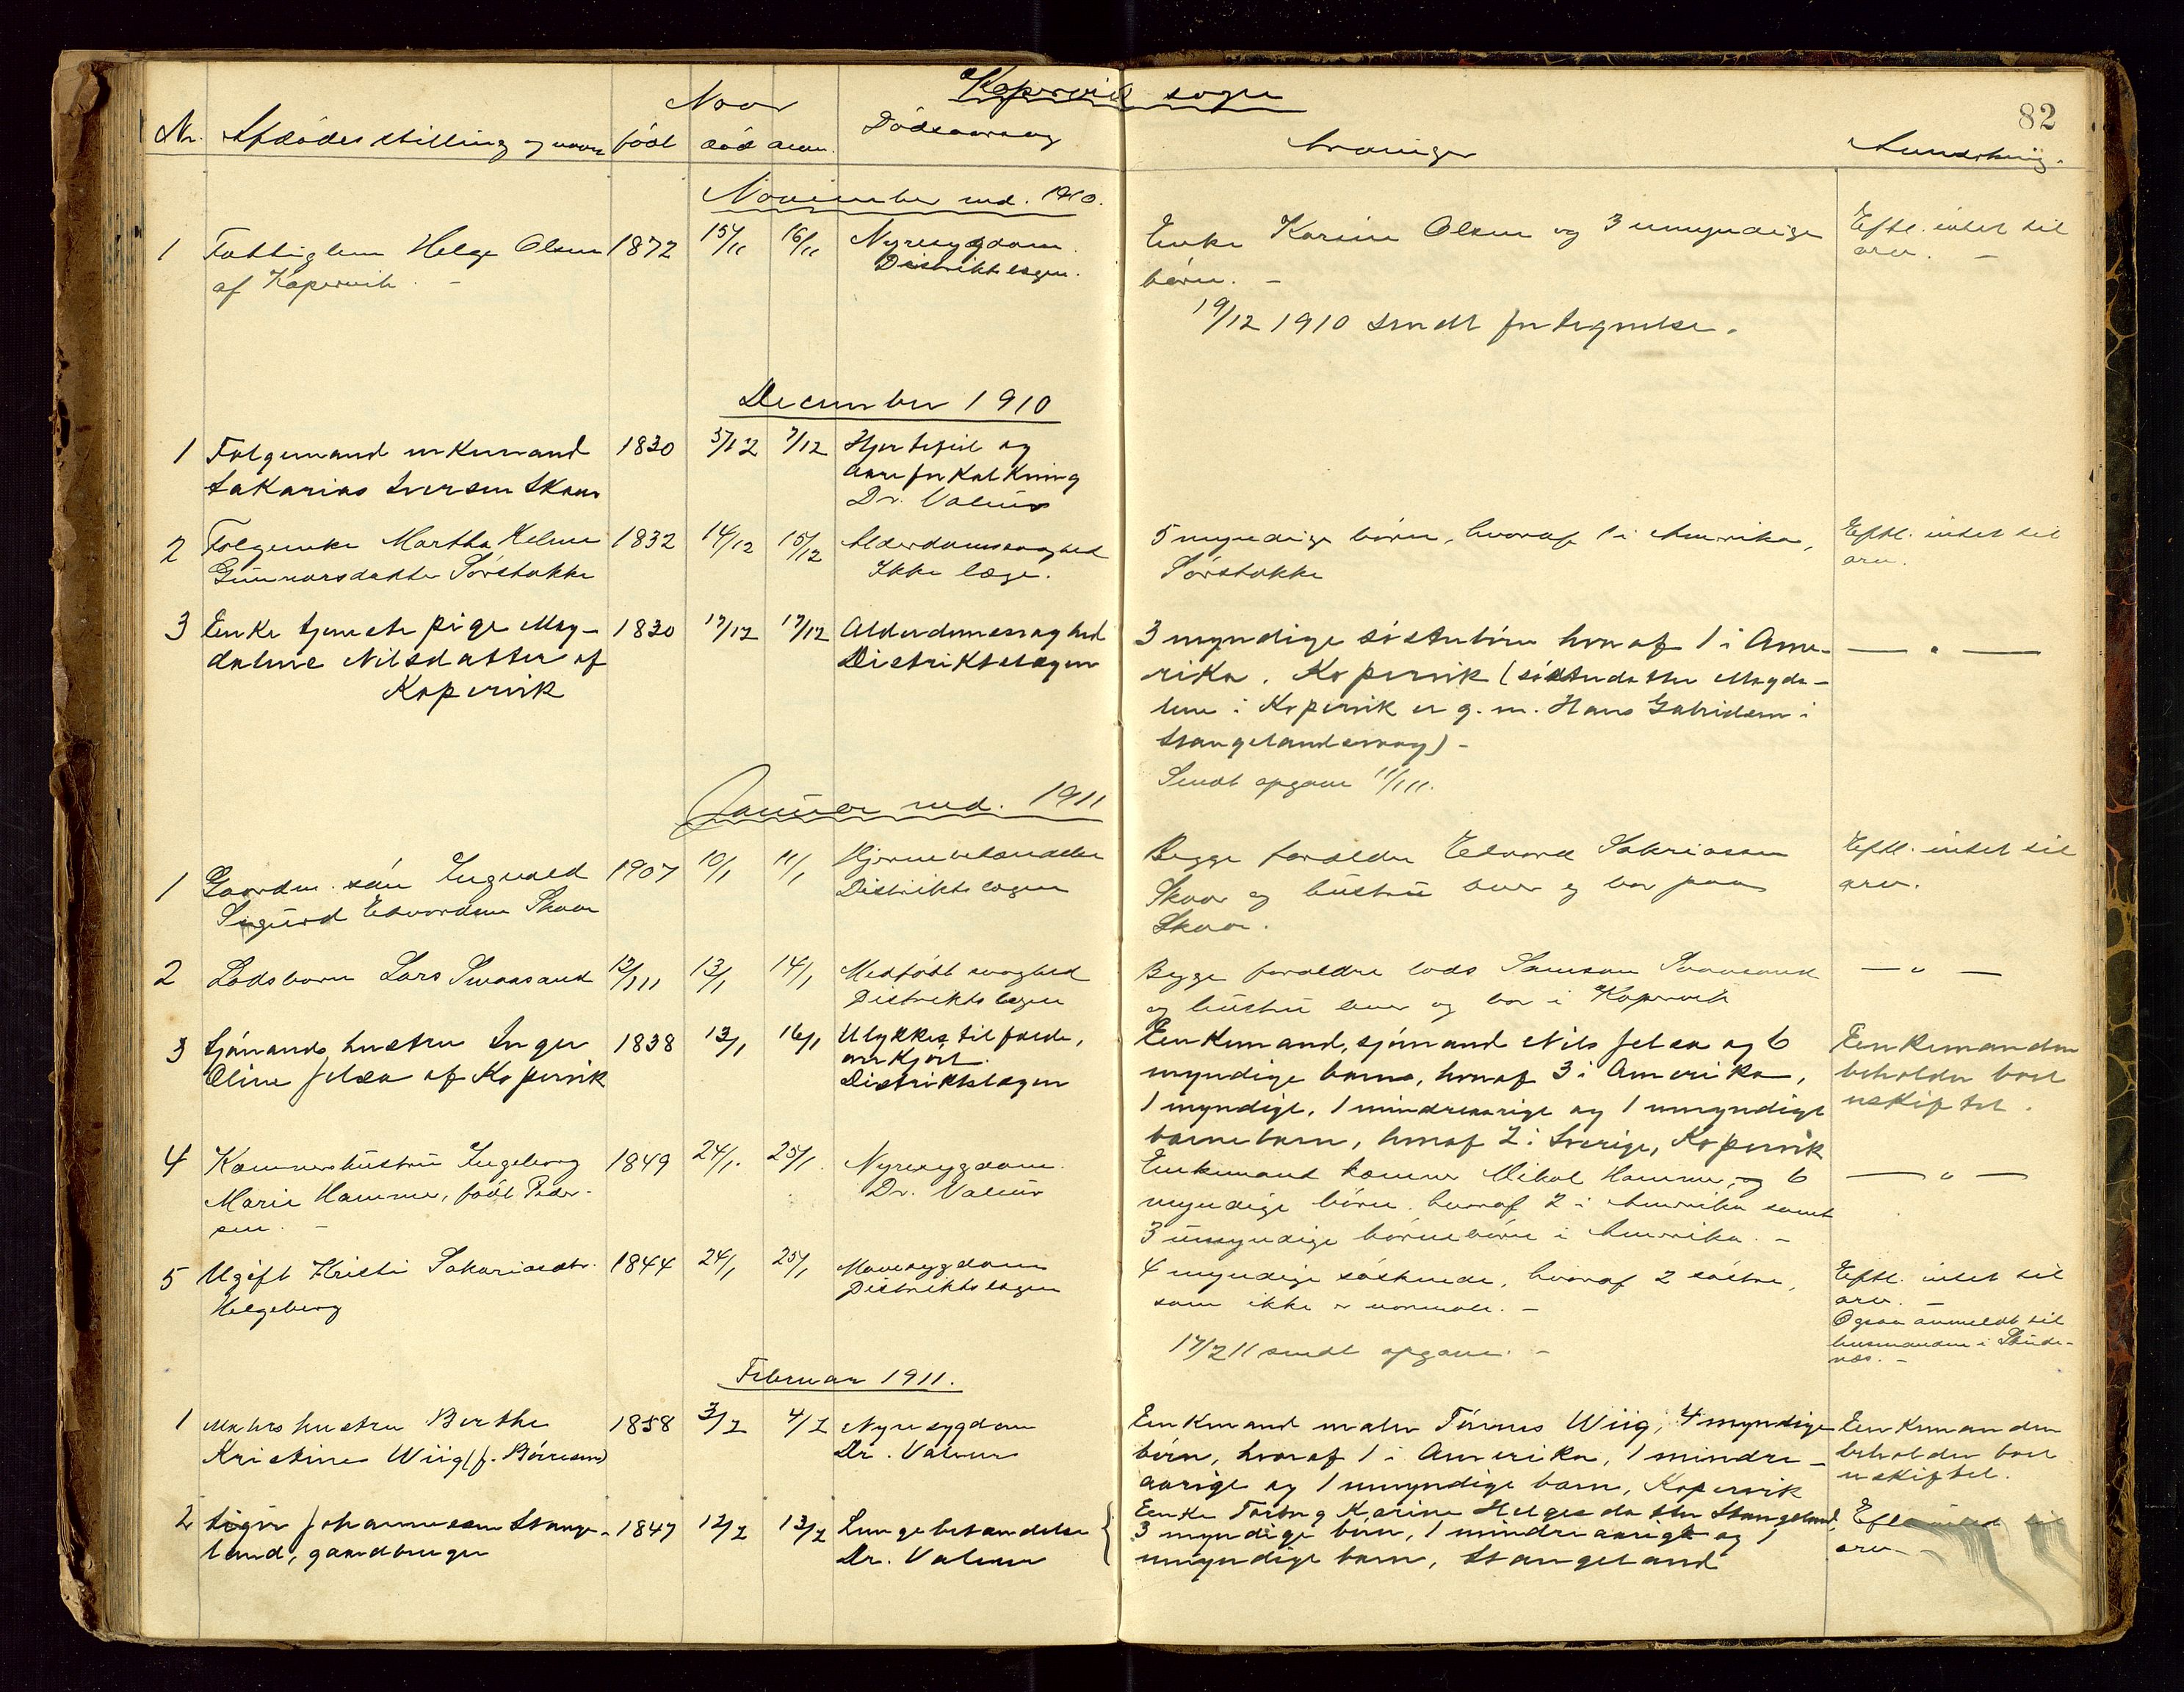 Kopervik sogn
82
Naar
Nr. Afdødes stilling og navn født død anm. Dødsaarsag Arvinger Anmerkning.
November md. 1910.
1 Fattiglem Helge Olsen 1872 15/11 16/11 Nyresygdom Enke Karine Olsen og 3 umyndige Eftl. intet til
af Kopervik. - Distriktslægen. børn. - arv. -
19/12 1910 sendt fortegnelse.
December 1910
1 Folgemand enkemand 1830 5/12 7/12 Hjertefeil og
Sakarias Iversen Skaar aareforkalkning
Dr. Valeur
2 Folgeenke Martha Helene 1832 14/12 15/12 Alderdomssvaghed 5 myndige børn, hvoraf 1 i Amerika, Eftl. intet til
Gunnarsdatter Sørstokke Ikke læge. Sørstokke arv.
3 Enke tjenestepige Mag- 1830 17/12 17/12 Alderdomssvaghed 3 myndige søsterbørn hvoraf 1 i Ame- — " —
dalene Nilsdatter af Distriktslægen rika. Kopervik (søsterdatter Magda-
Kopervik lene i Kopervik er g. m. Hans Gabrielsen i
Stangelandsvaag) -
Sendt opgave 11/1 11.
Januar md. 1911
1 Gaardm. søn Ingvald 1907 10/1 11/1 Hjernebetændelse Begge forældre Edvard Sakriassen Eftl. intet til
Sigurd Edvardsen Skaar Distriktslægen Skaar og hustru lever og bor paa arv.
Skaar.
2 Lodsbarn Lars Svaasand 12/1 11 13/1 14/1 Medfødt svaghed Begge forældre lods Samson Svaasand — " —
Distriktslægen og hustru lever og bor i Kopervik
3 Sjømands hustru Inger 1838 13/1 16/1 Ulykkestilfælde, Enkemand, sjømand Nils Jelsa og 6 Enkemanden
Oline Jelsa af Kopervik overkjørt. myndige børn, hvoraf 3 i Amerika, beholder boet
Distriktslægen 1 myndige, 1 mindreaarige og 1 umyndige uskiftet.
barnebarn, hvoraf 2 i Sverige, Kopervik
4 Kœmnershustru Ingeborg 1849 24/1. 25/1. Nyresygdom. Enkemand kœmner Mikal Hamme, og 6 — " —
Marie Hamme, født Peder- Dr. Valeur myndige børn, hvoraf 2 i Amerika samt
sen. - 3 umyndige børnebørn i Amerika. -
5 Ugift Kristi Sakariasdtr. 1844 24/1 25/1 Mavesygdom 4 myndige søskende, hvoraf 2 søstre, Eftl. intet til
Helgeberg Distriktslægen som ikke er normale. - arv. -
Ogsaa anmeldt til
17/2 11 sendt opgave. - lensmanden i Skude-
nes. -
Februar 1911.
1 Malers hustru Berthe 1858 3/2 4/2 Nyresygdom Enkemand maler Tønnes Wiig, 4 myndige Enkemanden
Kristine Wiig (f. Børresen) Dr. Valeur børn, hvoraf 1 i Amerika, 1 mindre- beholder boet
aarige og 1 umyndige barn, Kopervik uskiftet.
2 Sigur Johannessen Stange- 1847 12/2 13/2 Lungebetændelse Enke Torborg Karine Helgesdatter Stangeland, Eftl. intet til
land, gaardbruger Dr. Valeur 3 myndige børn, 1 mindreaarige og 1 arv
umyndige barn, Stangeland